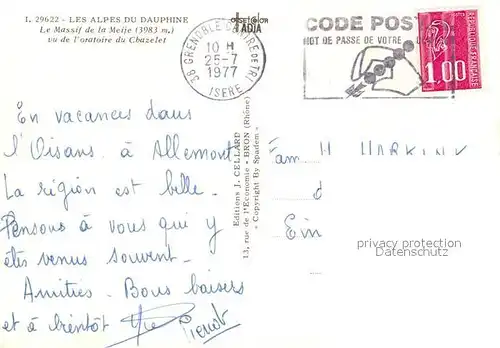 1. 29622 - LES ALPES DU DAUPHINE
Le Massif de la Meije (3983 m.)
vu de l'oratoire du Chazelet
38 GRENOBLE GARE DE TRI
10 H
25-7
1977
ISERE
CODE POST
MOT DE PASSE DE VOTRE
1,00
REPUBLIQUE FRANÇAISE
En vacances dans
l'Oisans à Allemont
La région est belle.
Pensons à vous qui y
êtes venus souvent.
Amitiés. Bons baisers
et à bientôt
Pierrot
Editions J. CELLARD
13, rue de l'Economie - BRON (Rhône)
« Copyright By Spadem »
Fam H HARKINK
d
Ein
privacy protection
Datenschutz